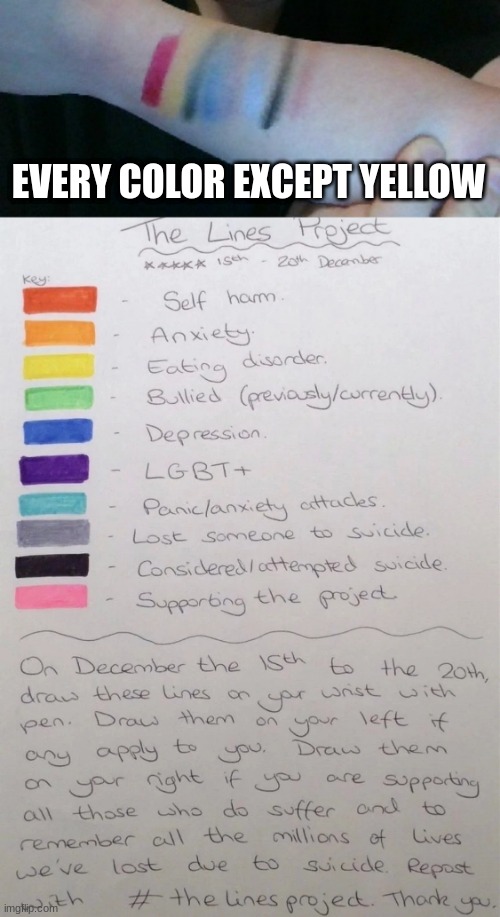 EVERY COLOR EXCEPT YELLOW
The Lines Project
***** 15th - 20th December
Key:
- Self harm.
- Anxiety.
- Eating disorder.
- Bullied (previously/currently).
- Depression.
- LGBT+
- Panic/anxiety attacks.
- Lost someone to suicide.
- Considered/attempted suicide.
- Supporting the project
On December the 15th to the 20th,
draw these lines on your wrist with
pen. Draw them on your left if
any apply to you. Draw them
on your right if you are supporting
all those who do suffer and to
remember all the millions of lives
we've lost due to suicide. Repost
with # the lines project. Thank you.
imgflip.com